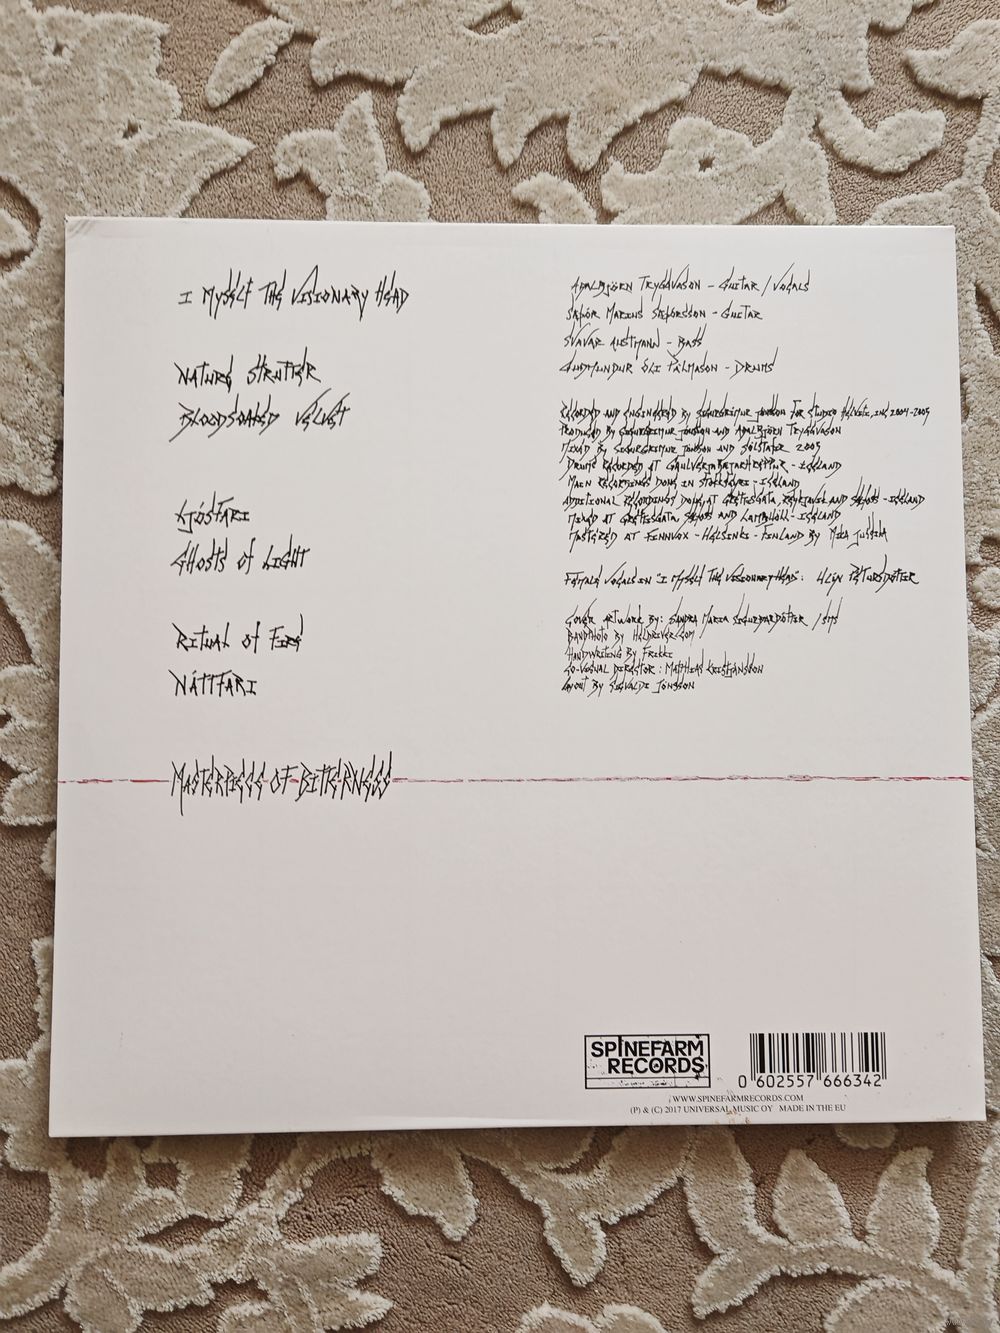 I Myself The Visionary Head
Nature Strutter
Bloodsoaked Velvet
Ljósfari
Ghosts of Light
Ritual of Fire
Náttfari
Masterpiece of Bitterness
Aðalbjörn Tryggvason - Guitar / Vocals
Sæþór Maríus Sæþórsson - Guitar
Svavar Austmann - Bass
Guðmundur Óli Pálmason - Drums
Recorded and engineered by Sigurgrímur Jónsson for Studio Helvíti, Inc 2004-2005
Produced by Sigurgrímur Jónsson and Aðalbjörn Tryggvason
Mixed by Sigurgrímur Jónsson and Sólstafir 2005
Drums recorded at Gaulverjabæjarhreppur - Iceland
Main recordings done in Stokkseyri - Iceland
Additional recordings done at Grettisgata, Reykjavík and - Iceland
Mixed at Grettisgata, and Lambhóll - Iceland
Mastered at Finnvox - Helsinki - Finland by Mika Jussila
Female Vocals in "I Myself The Visionary Head": Pétursdóttir
Cover artwork by: Sandra María Sigurðardóttir / sms
Bandphoto by Heldriver.com
Handwriting by Frikki
Co-visual director: Matthías Kristjánsson
Layout by Sigvaldi Jónsson
SPINEFARM
RECORDS
0 602557 666342
WWW.SPINEFARMRECORDS.COM
(P) & (C) 2017 UNIVERSAL MUSIC OY MADE IN THE EU